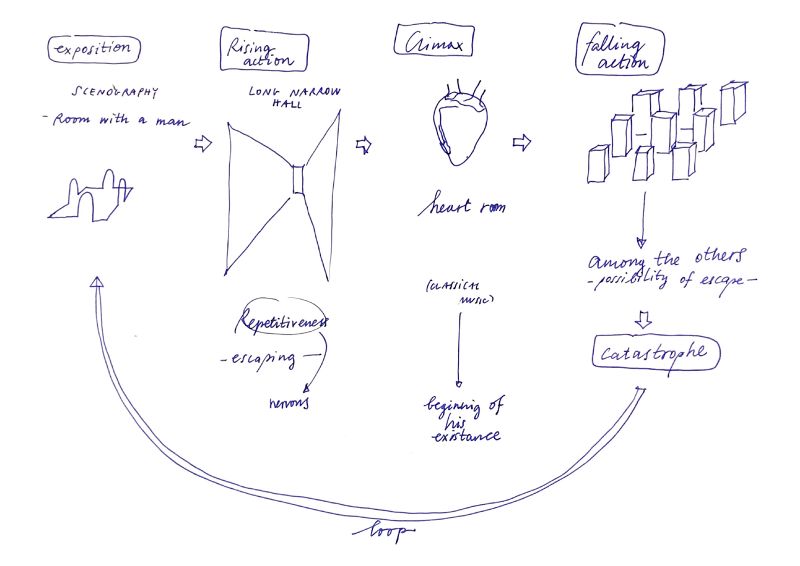 exposition
SCENOGRAPHY
- Room with a man
Rising
action
LONG NARROW
HALL
Repetitiveness
- escaping -
nervous
Climax
heart room
(CLASSICAL
MUSIC)
beginning of
his
existance
falling
action
among the others
- possibility of escape -
Catastrophe
loop